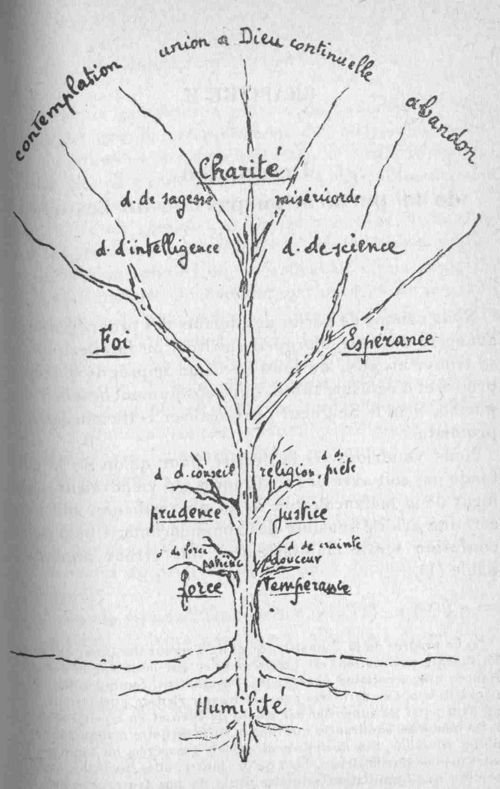 union a Dieu continuelle
contemplation
abandon
Charité
d. de sagesse
miséricorde
d. d'intelligence
d. de science
Foi
Espérance
d. d. conseil
religion, d. de piété
prudence
justice
d. de force
d. de crainte
patience
douceur
force
tempérance
Humilité